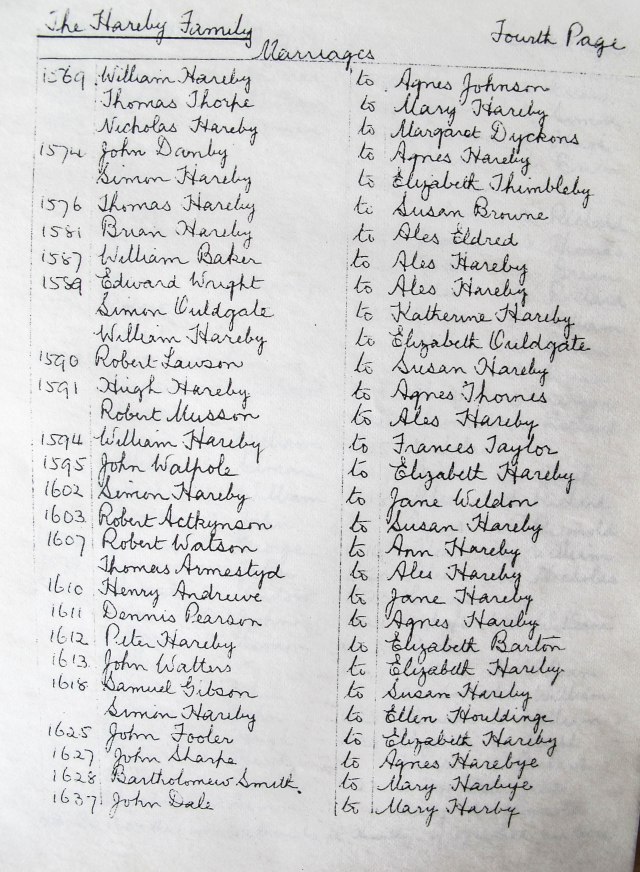 The Hareby Family Fourth Page
Marriages
1569 William Hareby to Agnes Johnson
Thomas Thorpe to Mary Hareby
Nicholas Hareby to Margaret Dyckons
1574 John Danby to Agnes Hareby
Simon Hareby to Elizabeth Thimbleby
1576 Thomas Hareby to Susan Browne
1581 Brian Hareby to Ales Eldred
1587 William Baker to Ales Hareby
1589 Edward Wright to Ales Hareby
Simon Ouldgate to Katherine Hareby
William Hareby to Elizabeth Ouldgate
1590 Robert Lawson to Susan Hareby
1591 Hugh Hareby to Agnes Thornes
Robert Musson to Ales Hareby
1594 William Hareby to Frances Taylor
1595 John Walpole to Elizabeth Hareby
1602 Simon Hareby to Jane Weldon
1603 Robert Actkynson to Susan Hareby
1607 Robert Watson to Ann Hareby
Thomas Armestyd to Ales Hareby
1610 Henry Andrewe to Jane Hareby
1611 Dennis Pearson to Agnes Hareby
1612 Peter Hareby to Elizabeth Barton
1613 John Watters to Elizabeth Hareby
1618 Samuel Gibson to Susan Hareby
Simon Hareby to Ellen Houldinge
1625 John Fooler to Elizabeth Hareby
1627 John Sharpe to Agnes Harebye
1628 Bartholomew Smith. to Mary Harbye
1637 John Dale to Mary Harby